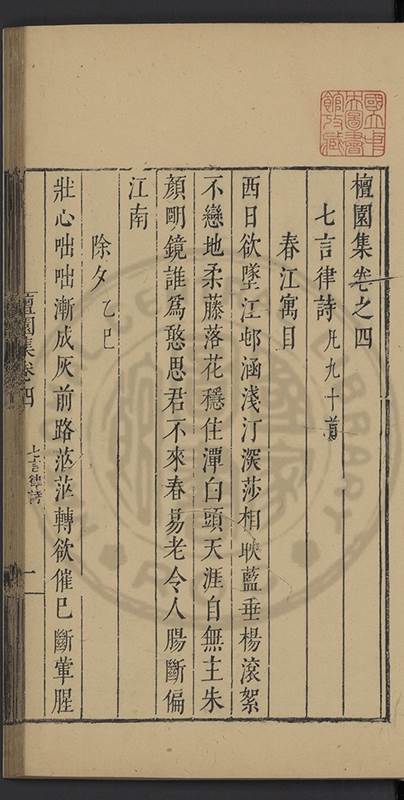 檀園集卷之四
七言律詩凡九十首
春江寓目
西日欲墜江邨涵淺汀深莎相映藍垂楊滾絮
不戀地柔藤落花穩住潭白頭天涯自無主朱
顏明鏡誰爲憨思君不來春易老令人腸斷偏
江南
除夕乙巳
壯心咄咄漸成灰前路茫茫轉欲催已斷葷腥
檀園集卷四
七言律詩
一
國立中
央圖書
館攷藏